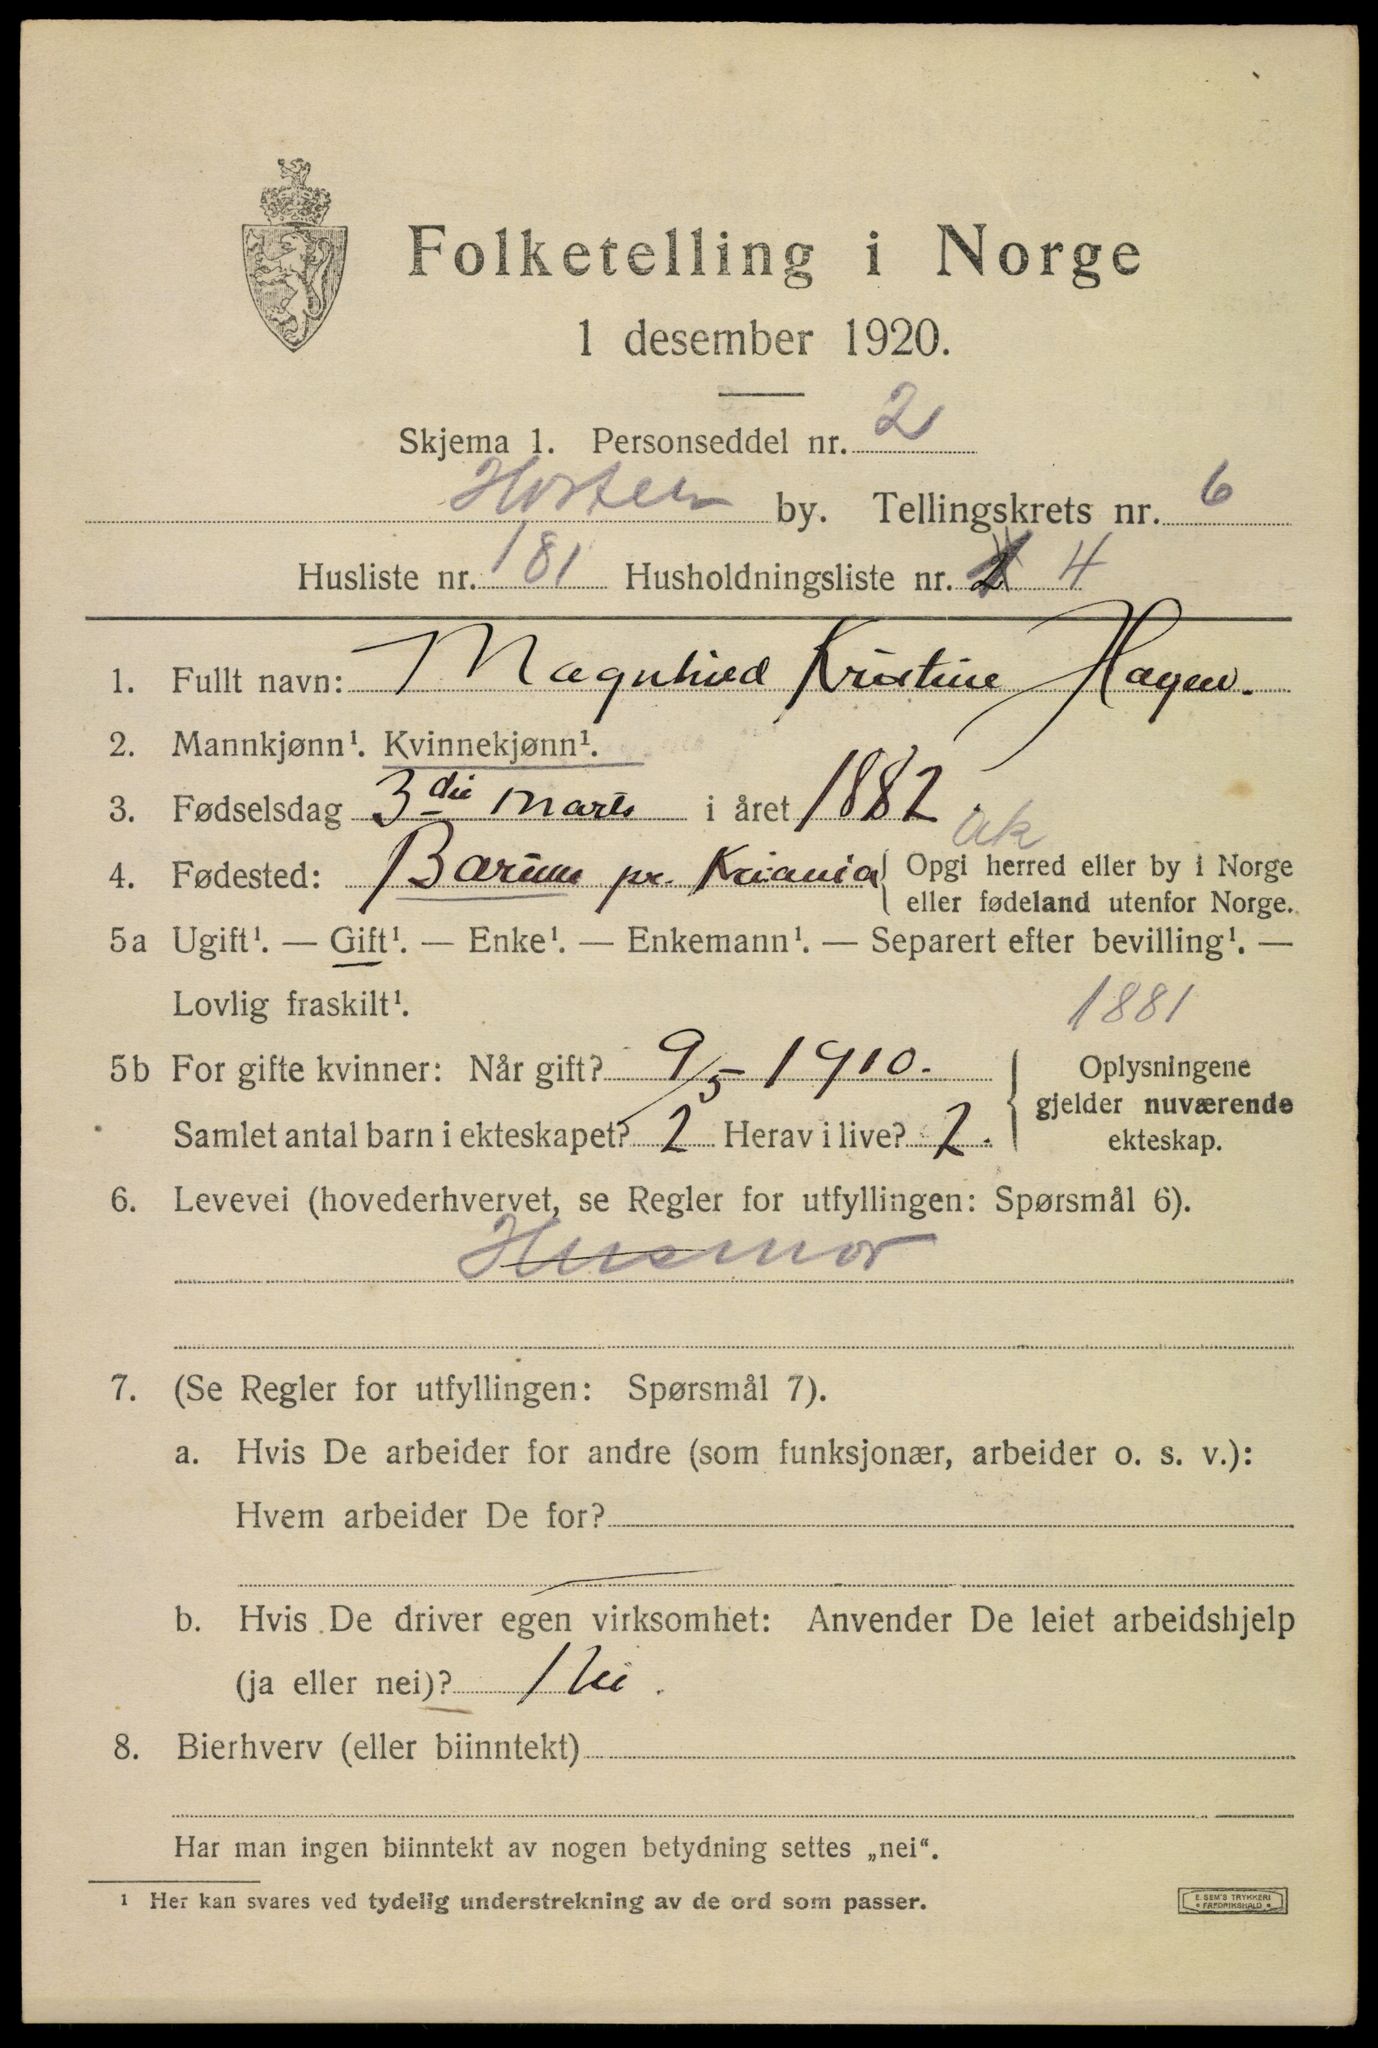 Folketelling i Norge
1 desember 1920.
Skjema 1. Personseddel nr. 2
Horten by. Tellingskrets nr. 6
Husliste nr. 181 Husholdningsliste nr. 2 4
1. Fullt navn: Magnhild Kristine Hagen.
2. Mannkjønn¹. Kvinnekjønn¹.
3. Fødselsdag 3die Marts i året 1882.
Ak
4. Fødested: Bærum pr. Kriania { Opgi herred eller by i Norge
eller fødeland utenfor Norge.
5a Ugift¹. — Gift¹. — Enke¹. — Enkemann¹. — Separert efter bevilling¹. —
Lovlig fraskilt¹.
1881
5b For gifte kvinner: Når gift? 9/5 1910. { Oplysningene
gjelder nuværende
Samlet antal barn i ekteskapet? 2 Herav i live? 2.
ekteskap.
6. Levevei (hovederhvervet, se Regler for utfyllingen: Spørsmål 6).
Husmor
7. (Se Regler for utfyllingen: Spørsmål 7).
a. Hvis De arbeider for andre (som funksjonær, arbeider o. s. v.):
Hvem arbeider De for?
b. Hvis De driver egen virksomhet: Anvender De leiet arbeidshjelp
(ja eller nei)? Nei.
8. Bierhverv (eller biinntekt)
Har man ingen biinntekt av nogen betydning settes „nei“.
¹ Her kan svares ved tydelig understrekning av de ord som passer.
E. SEM'S TRYKKERI
* FREDRIKSHALD *